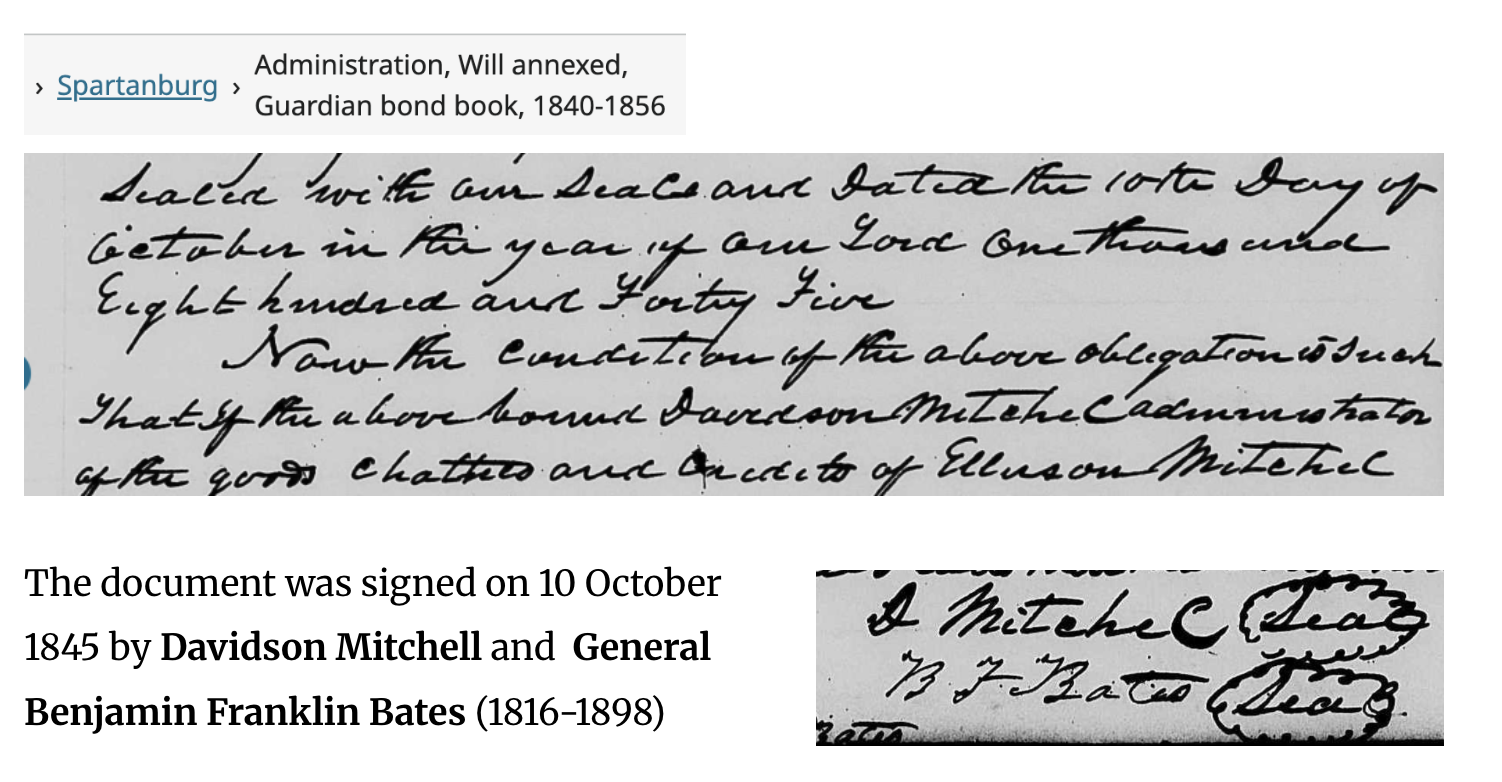 › Spartanburg › Administration, Will annexed,
Guardian bond book, 1840-1856
Sealed with our Seals and Dated the 10th Day of
October in the year of our Lord One thousand
Eight hundred and Forty Five
Now the Condition of the above obligation is Such
That If the above bound Davidson Mitchel administrator
of the goods Chattles and Credits of Ellison Mitchel
The document was signed on 10 October
1845 by Davidson Mitchell and General
Benjamin Franklin Bates (1816-1898)
D Mitchel Seal
B F Bates Seal
Bates